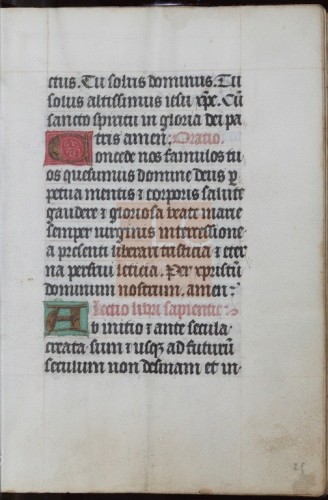 ctus. Tu solus dominus. Tu
solus altissimus iesu xp̄e. Cū
sancto spiritu in gloria dei pa
tris amen: Oratio.
Concede nos famulos tu
os quesumus domine deus ꝑ
petua mentis ⁊ corporis salute
gaudere ⁊ gloriosa beate marie
semper virginis intercessione
a presenti liberari tristicia ⁊ eter
na perfrui leticia. Per xpristū
dominum nostrum. amen:
Lectio libri sapientie:
Ab initio ⁊ ante secula
creata sum ⁊ usqꝫ ad futurū
seculum non desinam et in
25